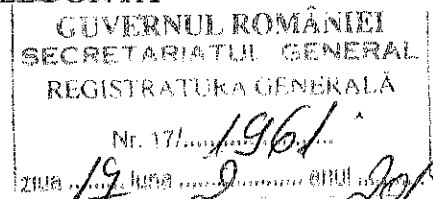 GUVERNUL ROMÂNIEI
SECRETARIATUL GENERAL
REGISTRATURA GENERALĂ
Nr. 17/......1961
ziua ...... luna ...... anul